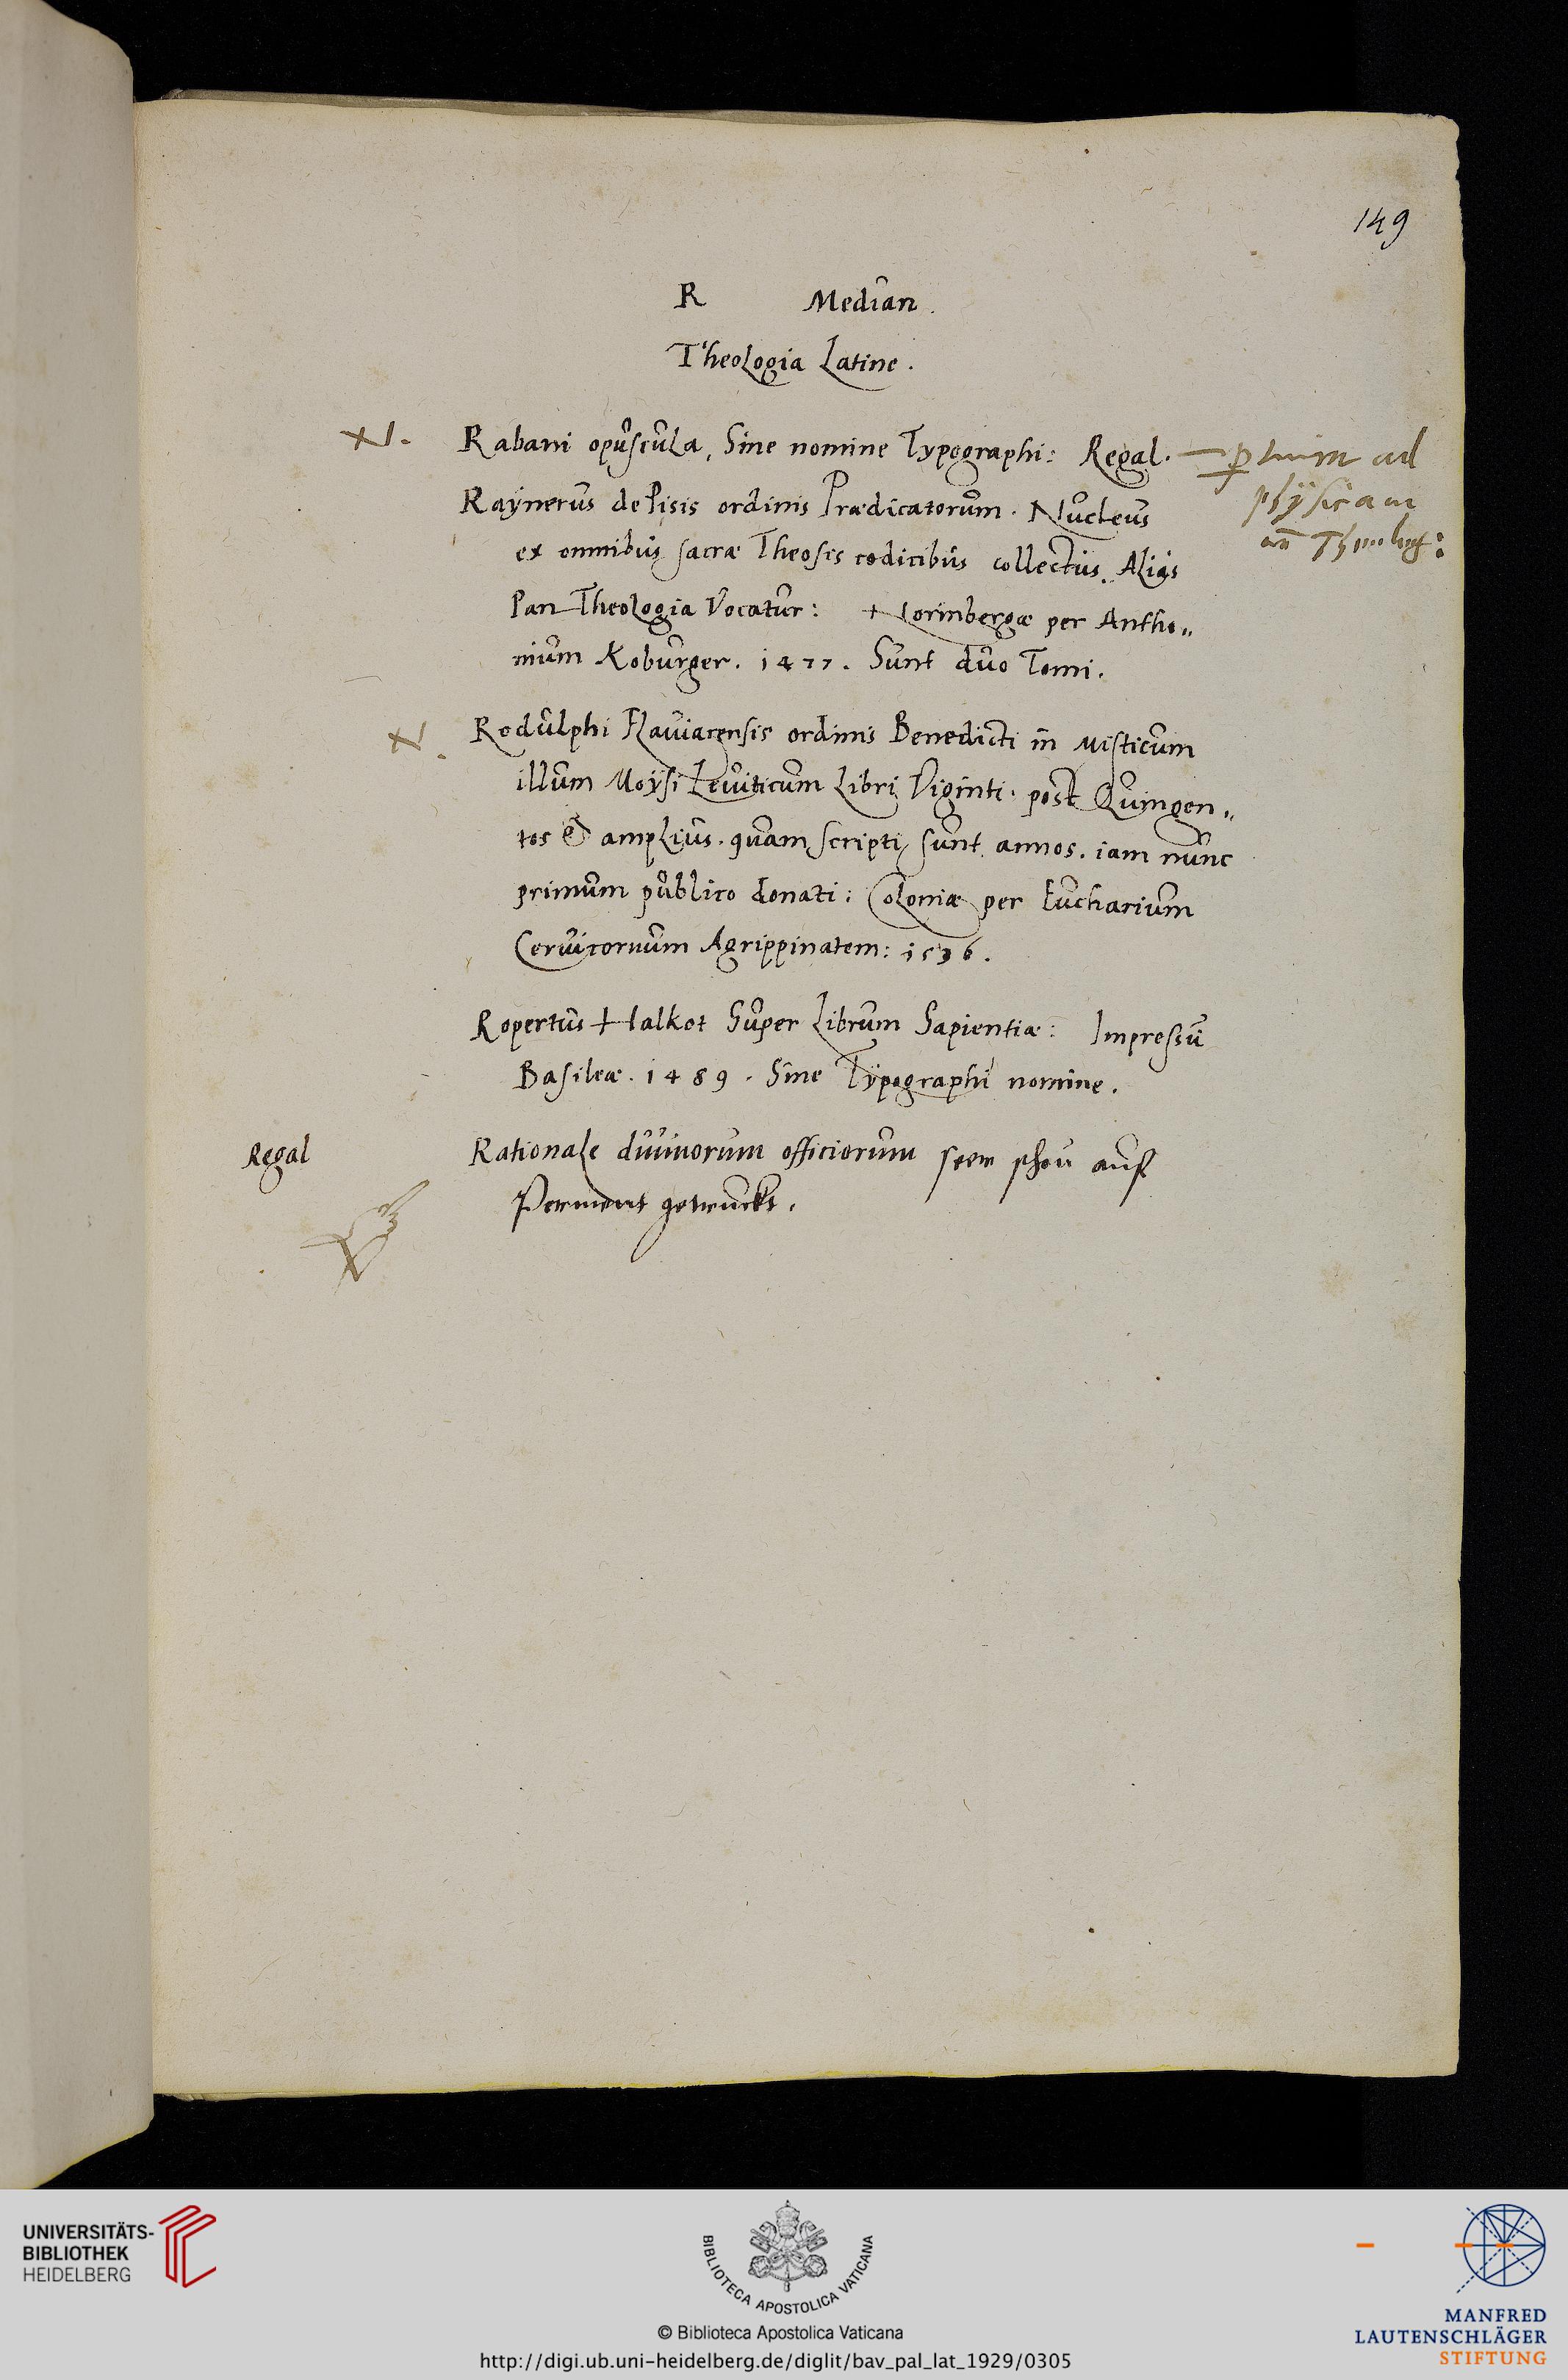 149
R Median.
Theologia Latine.
Rabani opuscula, Sine nomine Typographi: Regal.
ad
physicam
Raÿnerus de Pisis ordinis Prædicatorum. Nucleus
ex omnibus sacræ Theosis codicibus collectus. Alias
Pan Theologia Vocatur: Norinbergæ per Antho„
nium Koburger. 1477. Sunt duo Tomi.
Rodulphi Flaviacensis ordinis Benedicti in Misticum
illum Moÿsi Leuiticum Libri Viginti. post Quingen„
tos & amplius. quam scripti sunt annos. iam nunc
primum publico donati: Coloniæ per Eucharium
Ceruicornum Agrippinatem: 1536.
Ropertus Halkot Super Librum Sapientiæ: Impressū
Basileæ. 1489. Sine Tÿpographi nomine.
Regal
Rationale diuinorum officiorum seer schon auf
Perment getruckt.
UNIVERSITÄTS-
BIBLIOTHEK
HEIDELBERG
BIBLIOTECA APOSTOLICA VATICANA
© Biblioteca Apostolica Vaticana
http://digi.ub.uni-heidelberg.de/diglit/bav_pal_lat_1929/0305
MANFRED
LAUTENSCHLÄGER
STIFTUNG